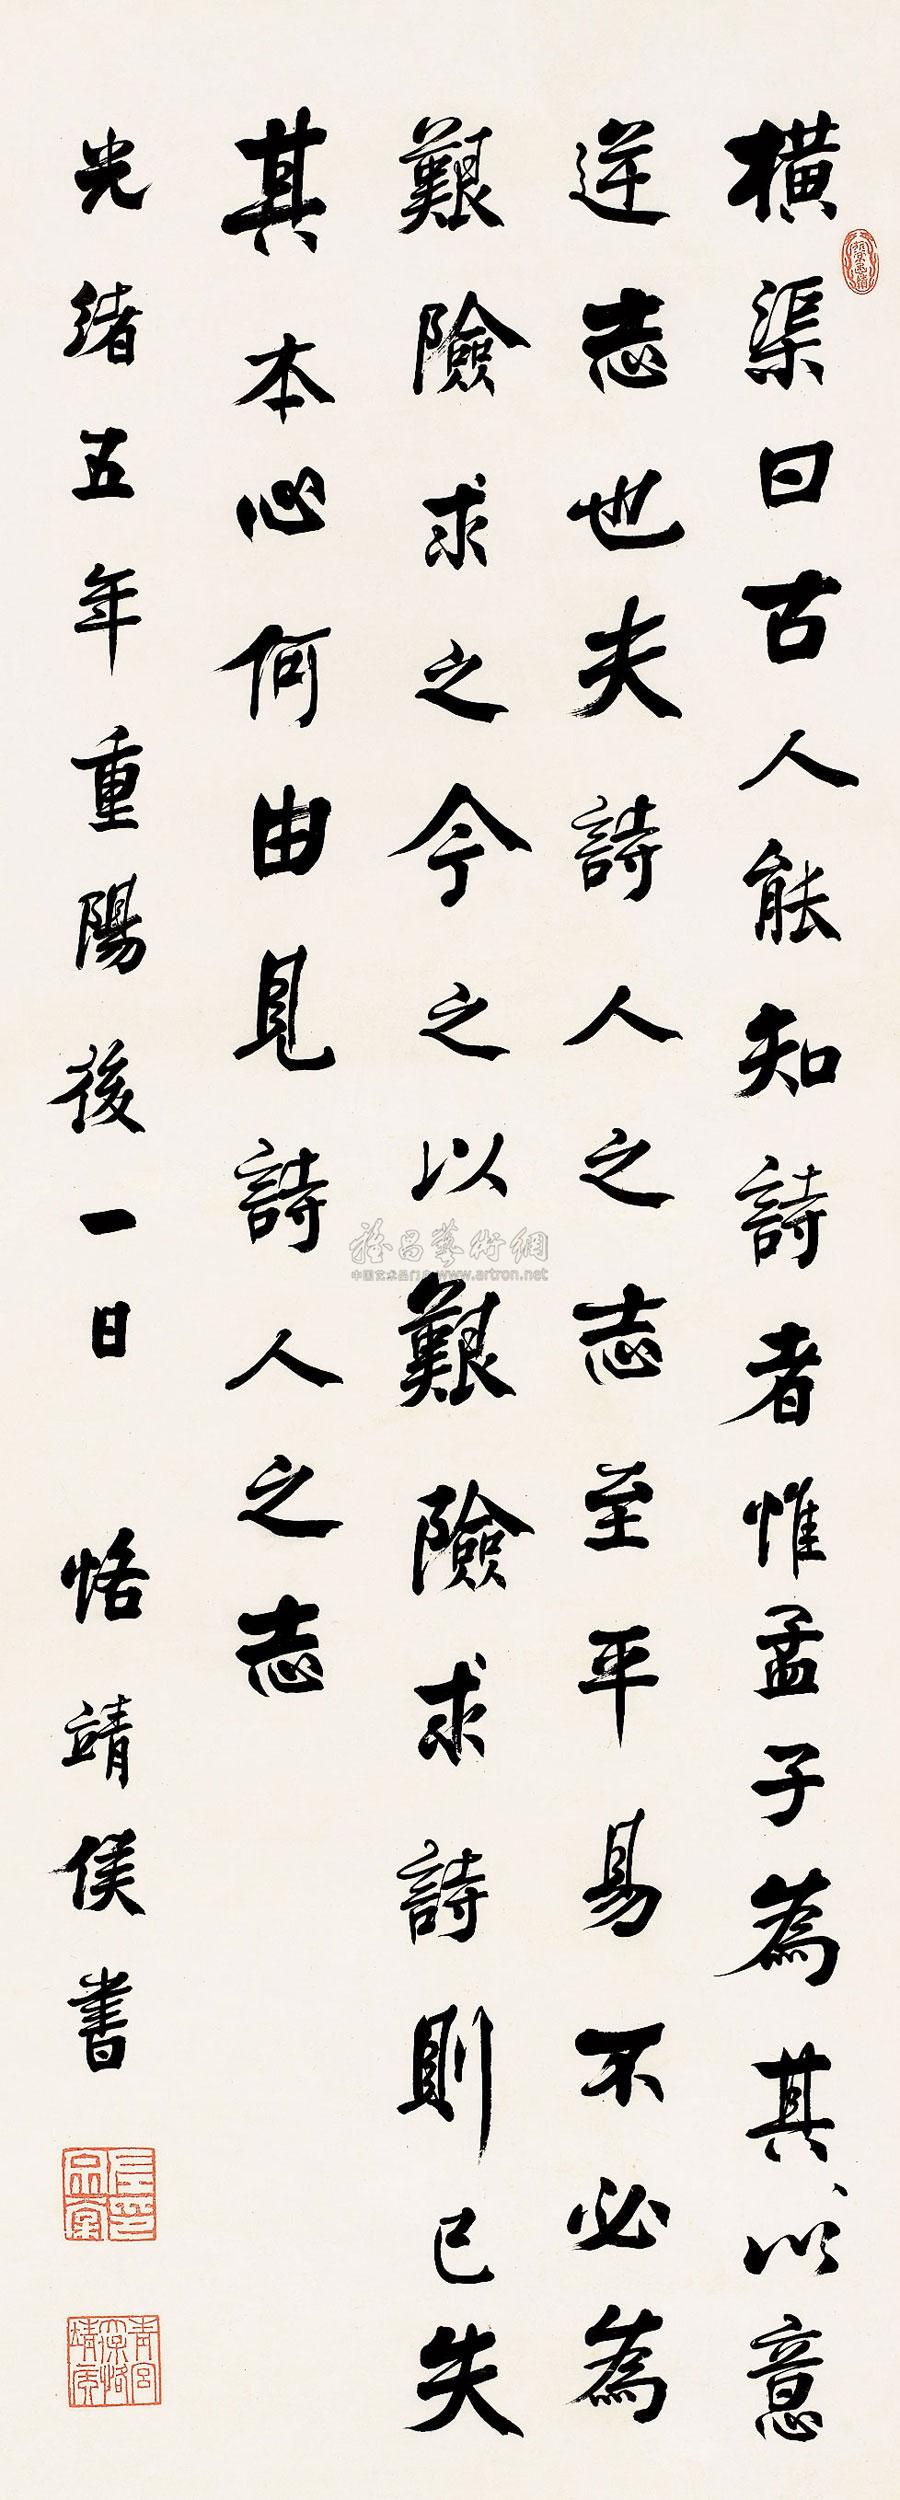 橫渠曰古人能知詩者惟孟子為其以意
逆志也夫詩人之志至平易不必為
艱險求之今之以艱險求詩則已失
其本心何由見詩人之志
光緒五年重陽後一日 恪靖侯書
青宮
太保恪
靖侯
雅昌藝術網
中国艺术品门户www.artron.net